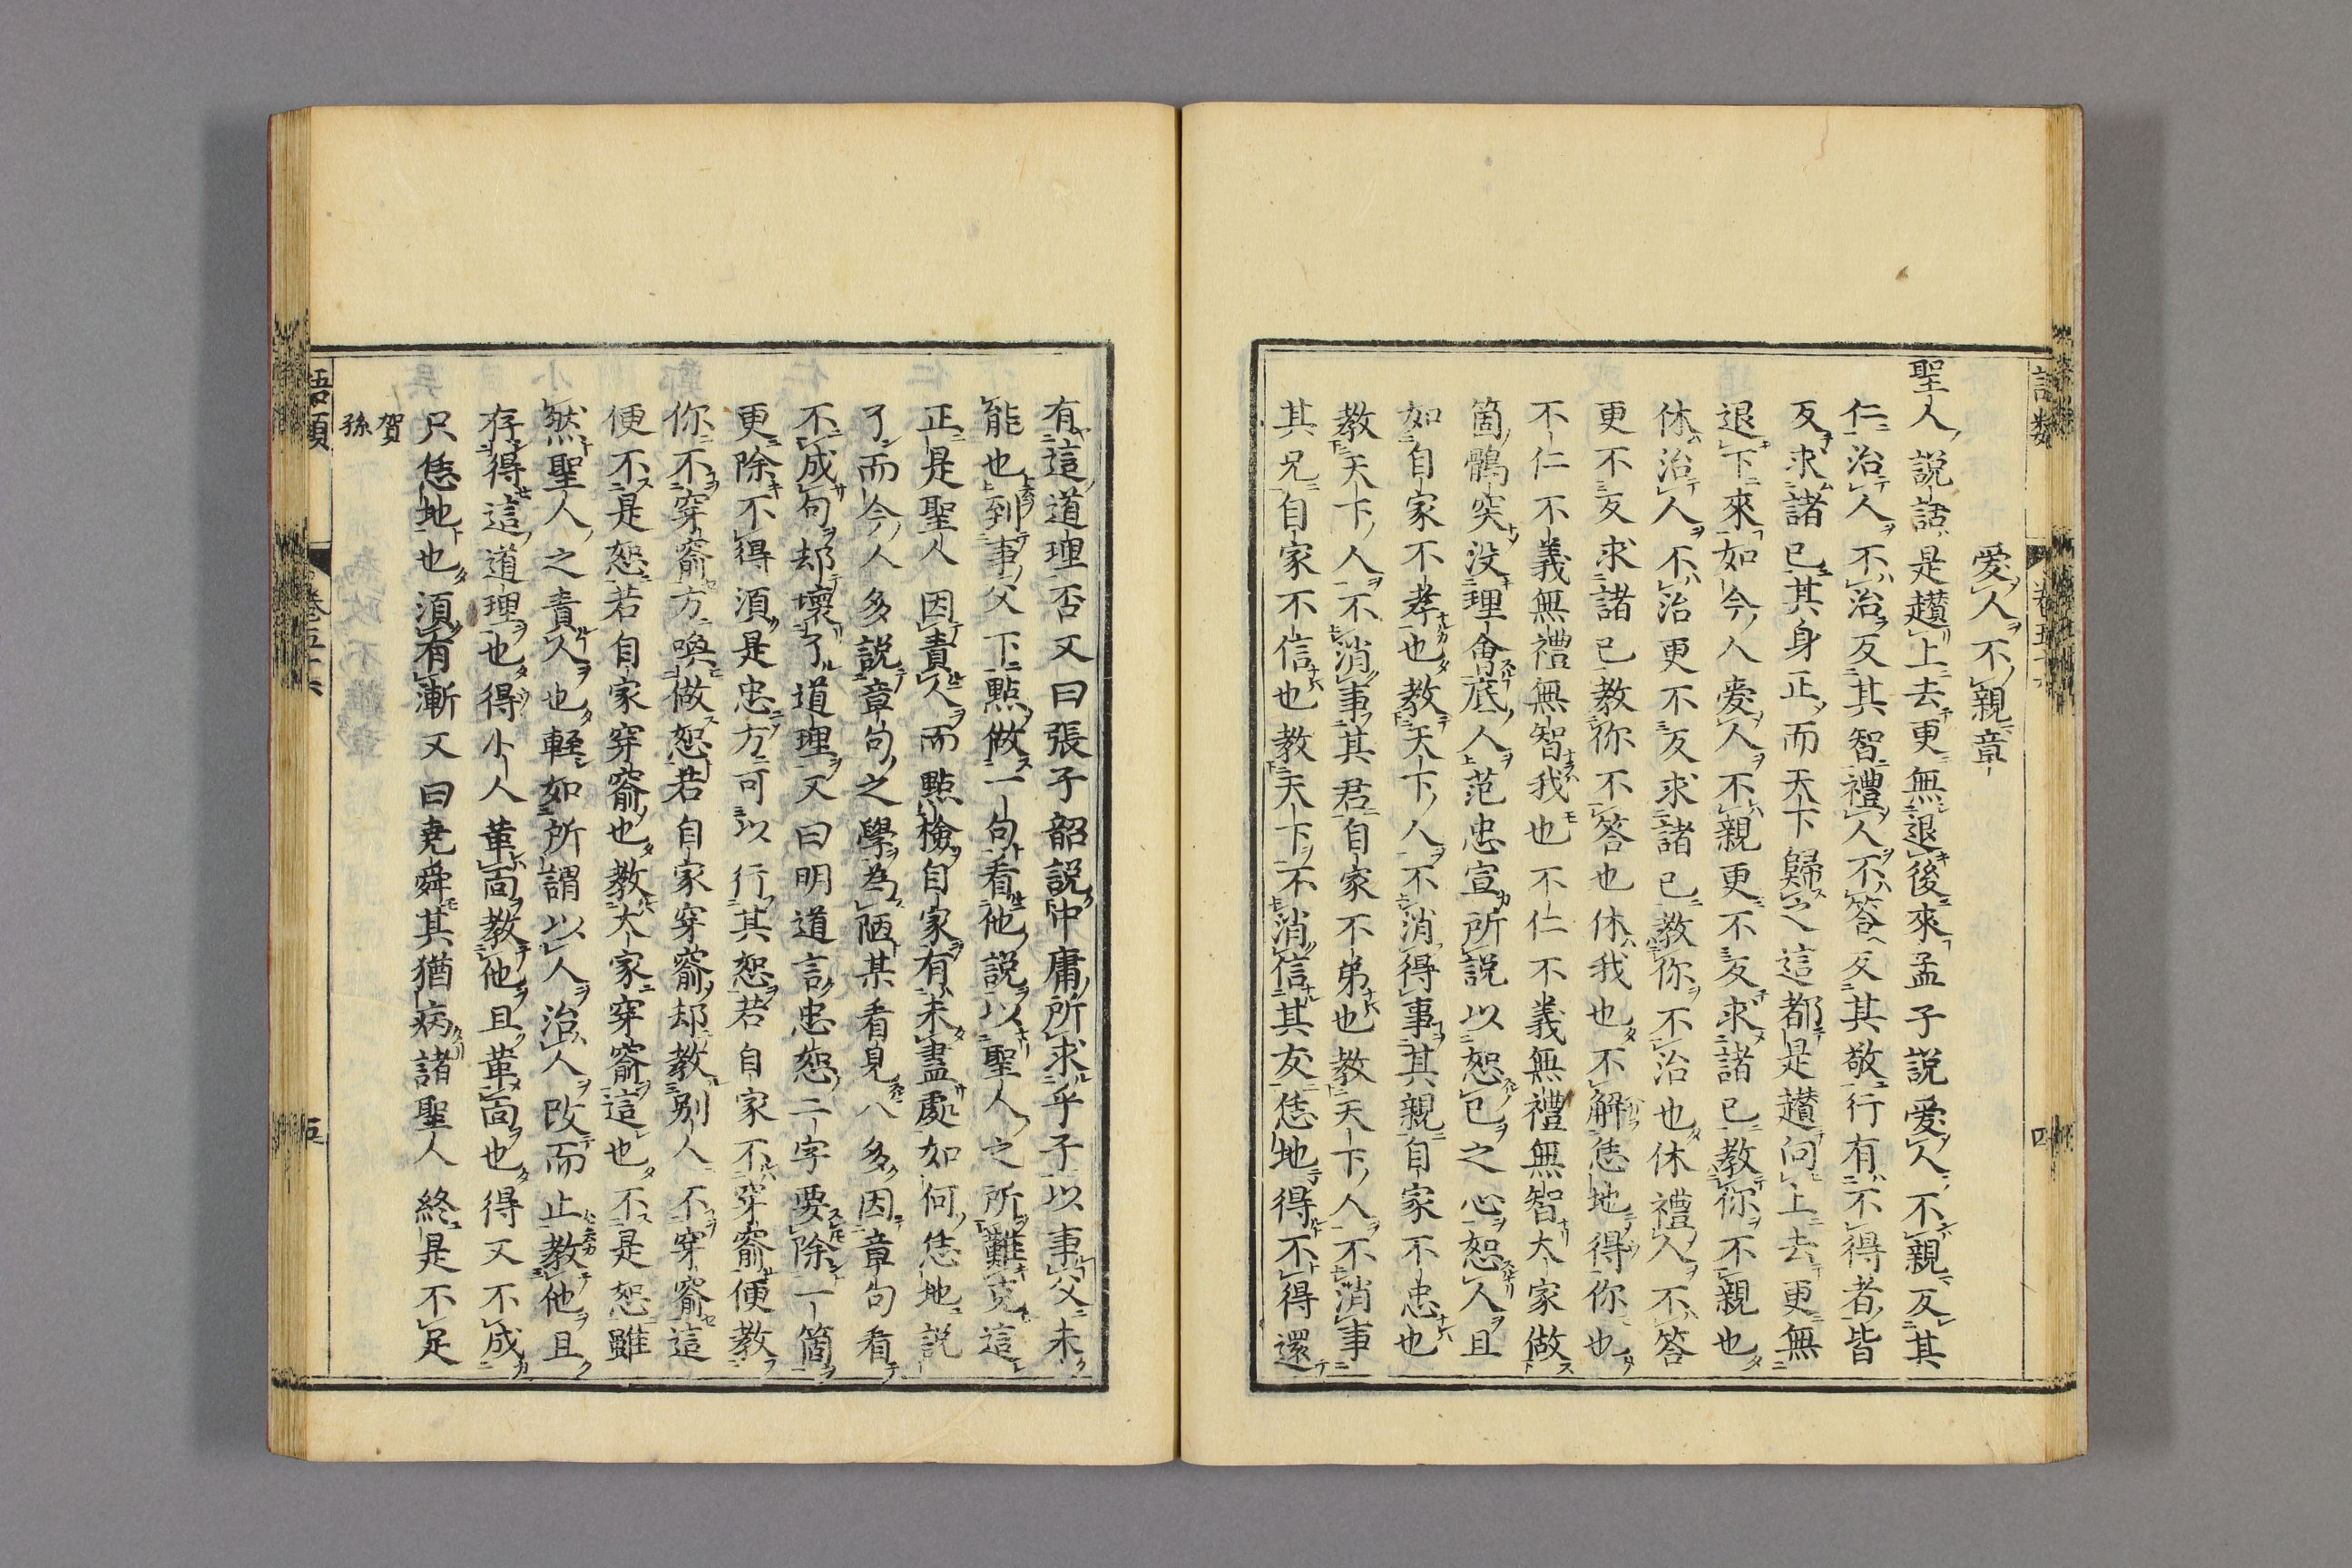 愛人不親章
聖人說話是趲上去更無退後來孟子說愛人不親反其
仁治人不治反其智禮人不答反其敬行有不得者皆
反求諸己其身正而天下歸之這都是趲向上去更無
退下來如今人愛人不親更不反求諸己教你不親也
休治人不治更不反求諸己教你不治也休禮人不答
更不反求諸己教你不答也休我也不解恁地得你也
不仁不義無禮無智我也不仁不義無禮無智大家做
箇鶻突沒理會底人范忠宣所說以恕己之心恕人且
如自家不孝也教天下人不消得事其親自家不忠也
教天下人不消事其君自家不弟也教天下人不消事
其兄自家不信也教天下不消信其友恁地得不得還
有這道理否又曰張子韶說中庸所求乎子以事父未
能也到事父下點做一句看他說以聖人之所難克這
正是聖人因責人而點檢自家有未盡處如何恁地說
了而今人多說章句之學為陋某看見人多因章句看
不成句却壞了道理又曰明道言忠恕二字要除一箇
更除不得須是忠方可以行其恕若自家不穿窬便教
你不穿窬方喚做恕若自家穿窬却教別人不穿窬這
便不是恕若自家穿窬也教大家穿窬這也不是恕雖
然聖人之責人也輕如所謂以人治人改而止教他且
存得這道理也得小人革面教他且革面也得又不成
只恁地也須有漸又曰堯舜其猶病諸聖人終是不足
賀
孫
語類
卷五十六
五